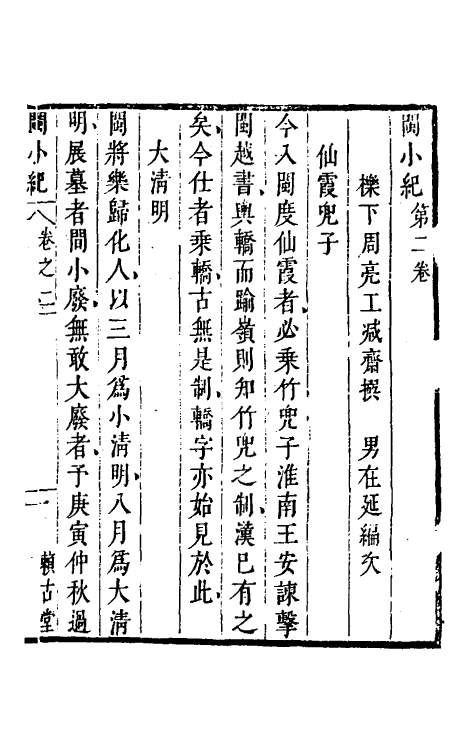 閩小紀第二卷
櫟下周亮工減齋撰　男在延編次
仙霞兜子
今入閩度仙霞者必乘竹兜子淮南王安諫擊
閩越書輿轎而踰嶺則知竹兜之制漢已有之
矣今仕者乘轎古無是制轎字亦始見於此
大清明
閩將樂歸化人以三月爲小清明八月爲大清
明展墓者間小廢無敢大廢者予庚寅仲秋過
閩小紀　卷之二　一　賴古堂